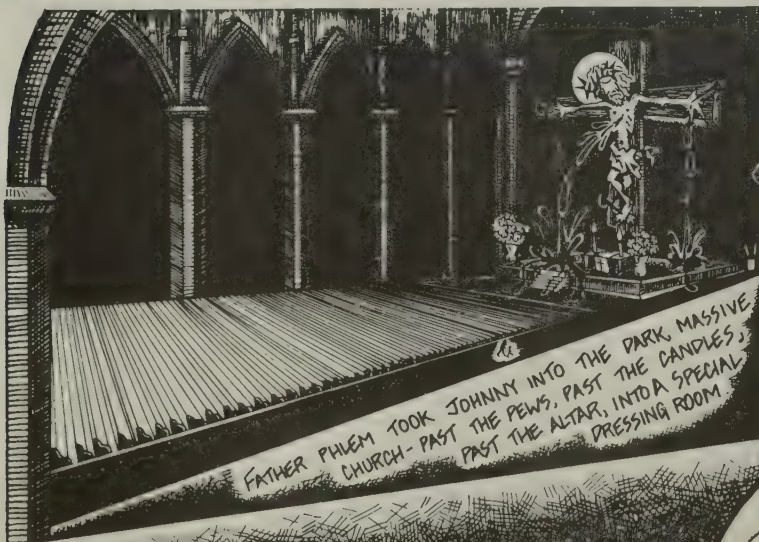 FATHER PHLEM TOOK JOHNNY INTO THE DARK, MASSIVE
CHURCH - PAST THE PEWS, PAST THE CANDLES,
PAST THE ALTAR, INTO A SPECIAL
DRESSING ROOM.